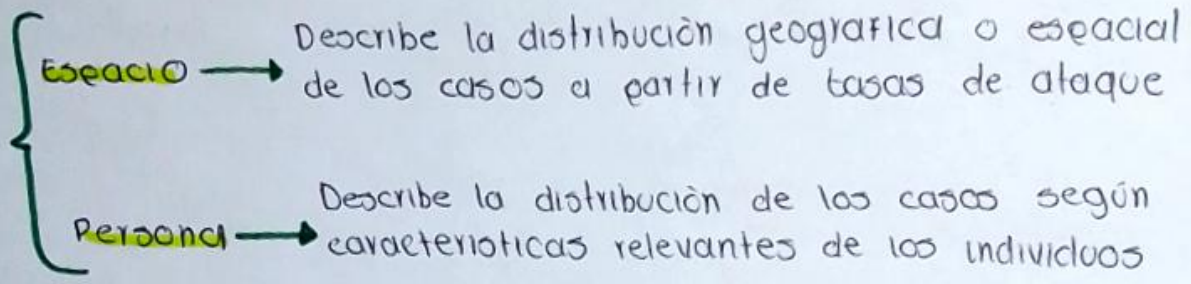 Espacio → Describe la distribución geografica o espacial
de los casos a partir de tasas de ataque
Persona → Describe la distribución de los casos según
caracteristicas relevantes de los individuos